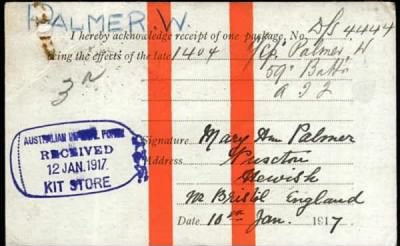 PALMER. W.
I hereby acknowledge receipt of one package, No. D/S 4444
being the effects of the late 1404 L/Cpl Palmer W
59th Battn
3a
A I F
AUSTRALIAN IMPERIAL FORCE
RECEIVED
12 JAN. 1917
KIT STORE
Signature Mary Ann Palmer
Address
Hewish
Nr Bristol England
Date 10th Jan. 1917